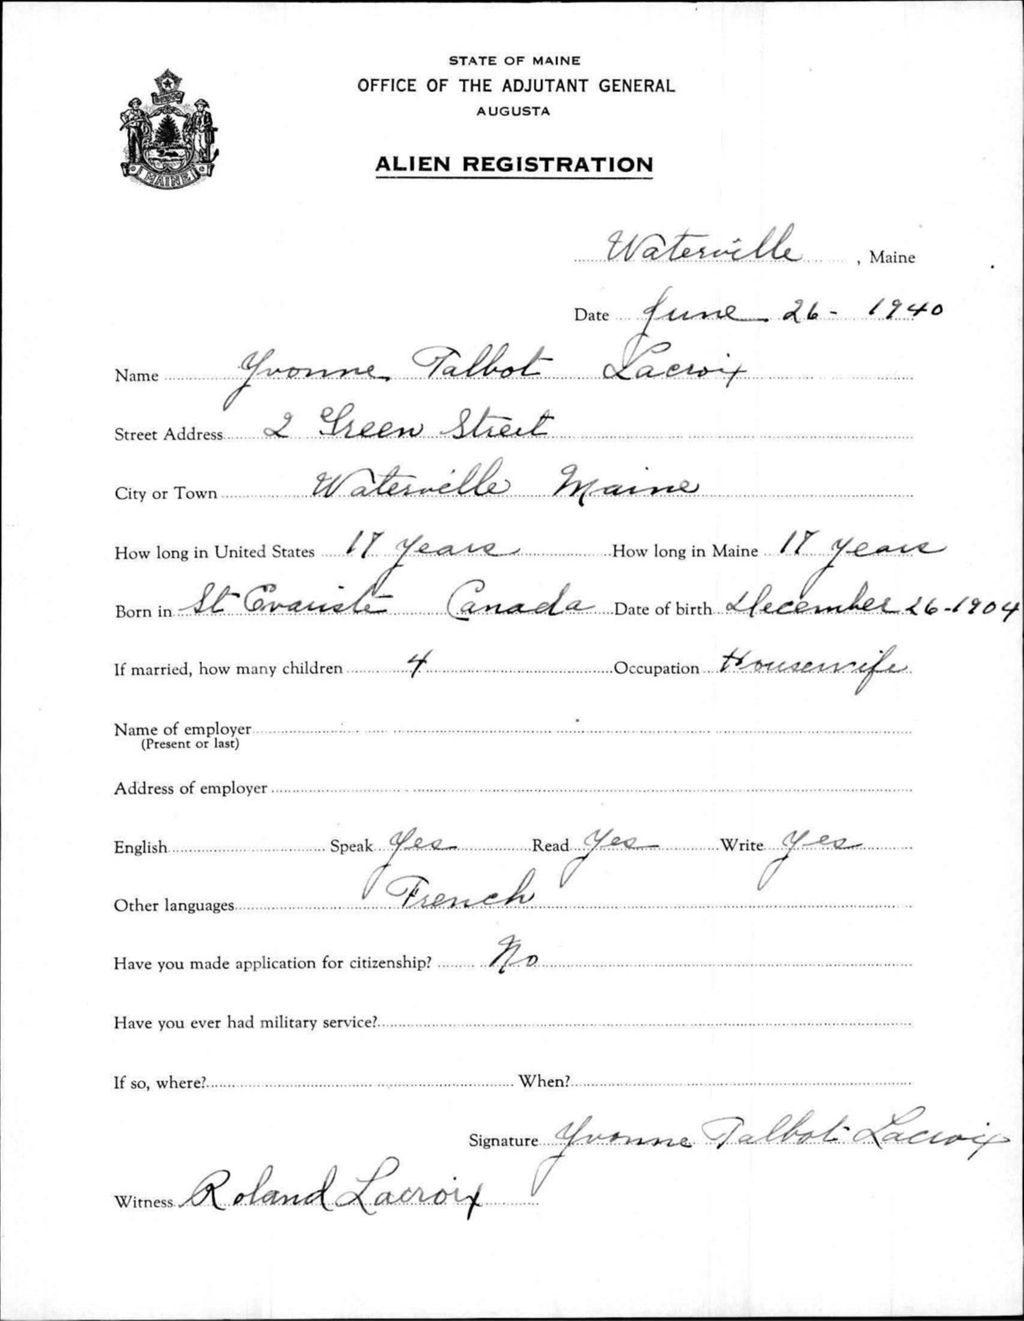 STATE OF MAINE
OFFICE OF THE ADJUTANT GENERAL
AUGUSTA
ALIEN REGISTRATION
MAINE
Waterville, Maine
Date June 26 - 1940
Name Yvonne Talbot Lacroix
Street Address 2 Green Street
City or Town Waterville Maine
How long in United States 17 years How long in Maine 17 years
Born in St Evariste Canada Date of birth December 26-1904
If married, how many children 4 Occupation Housewife
Name of employer
(Present or last)
Address of employer
English Speak Yes Read Yes Write Yes
Other languages French
Have you made application for citizenship? No
Have you ever had military service?
If so, where? When?
Signature Yvonne Talbot Lacroix
Witness Roland Lacroix